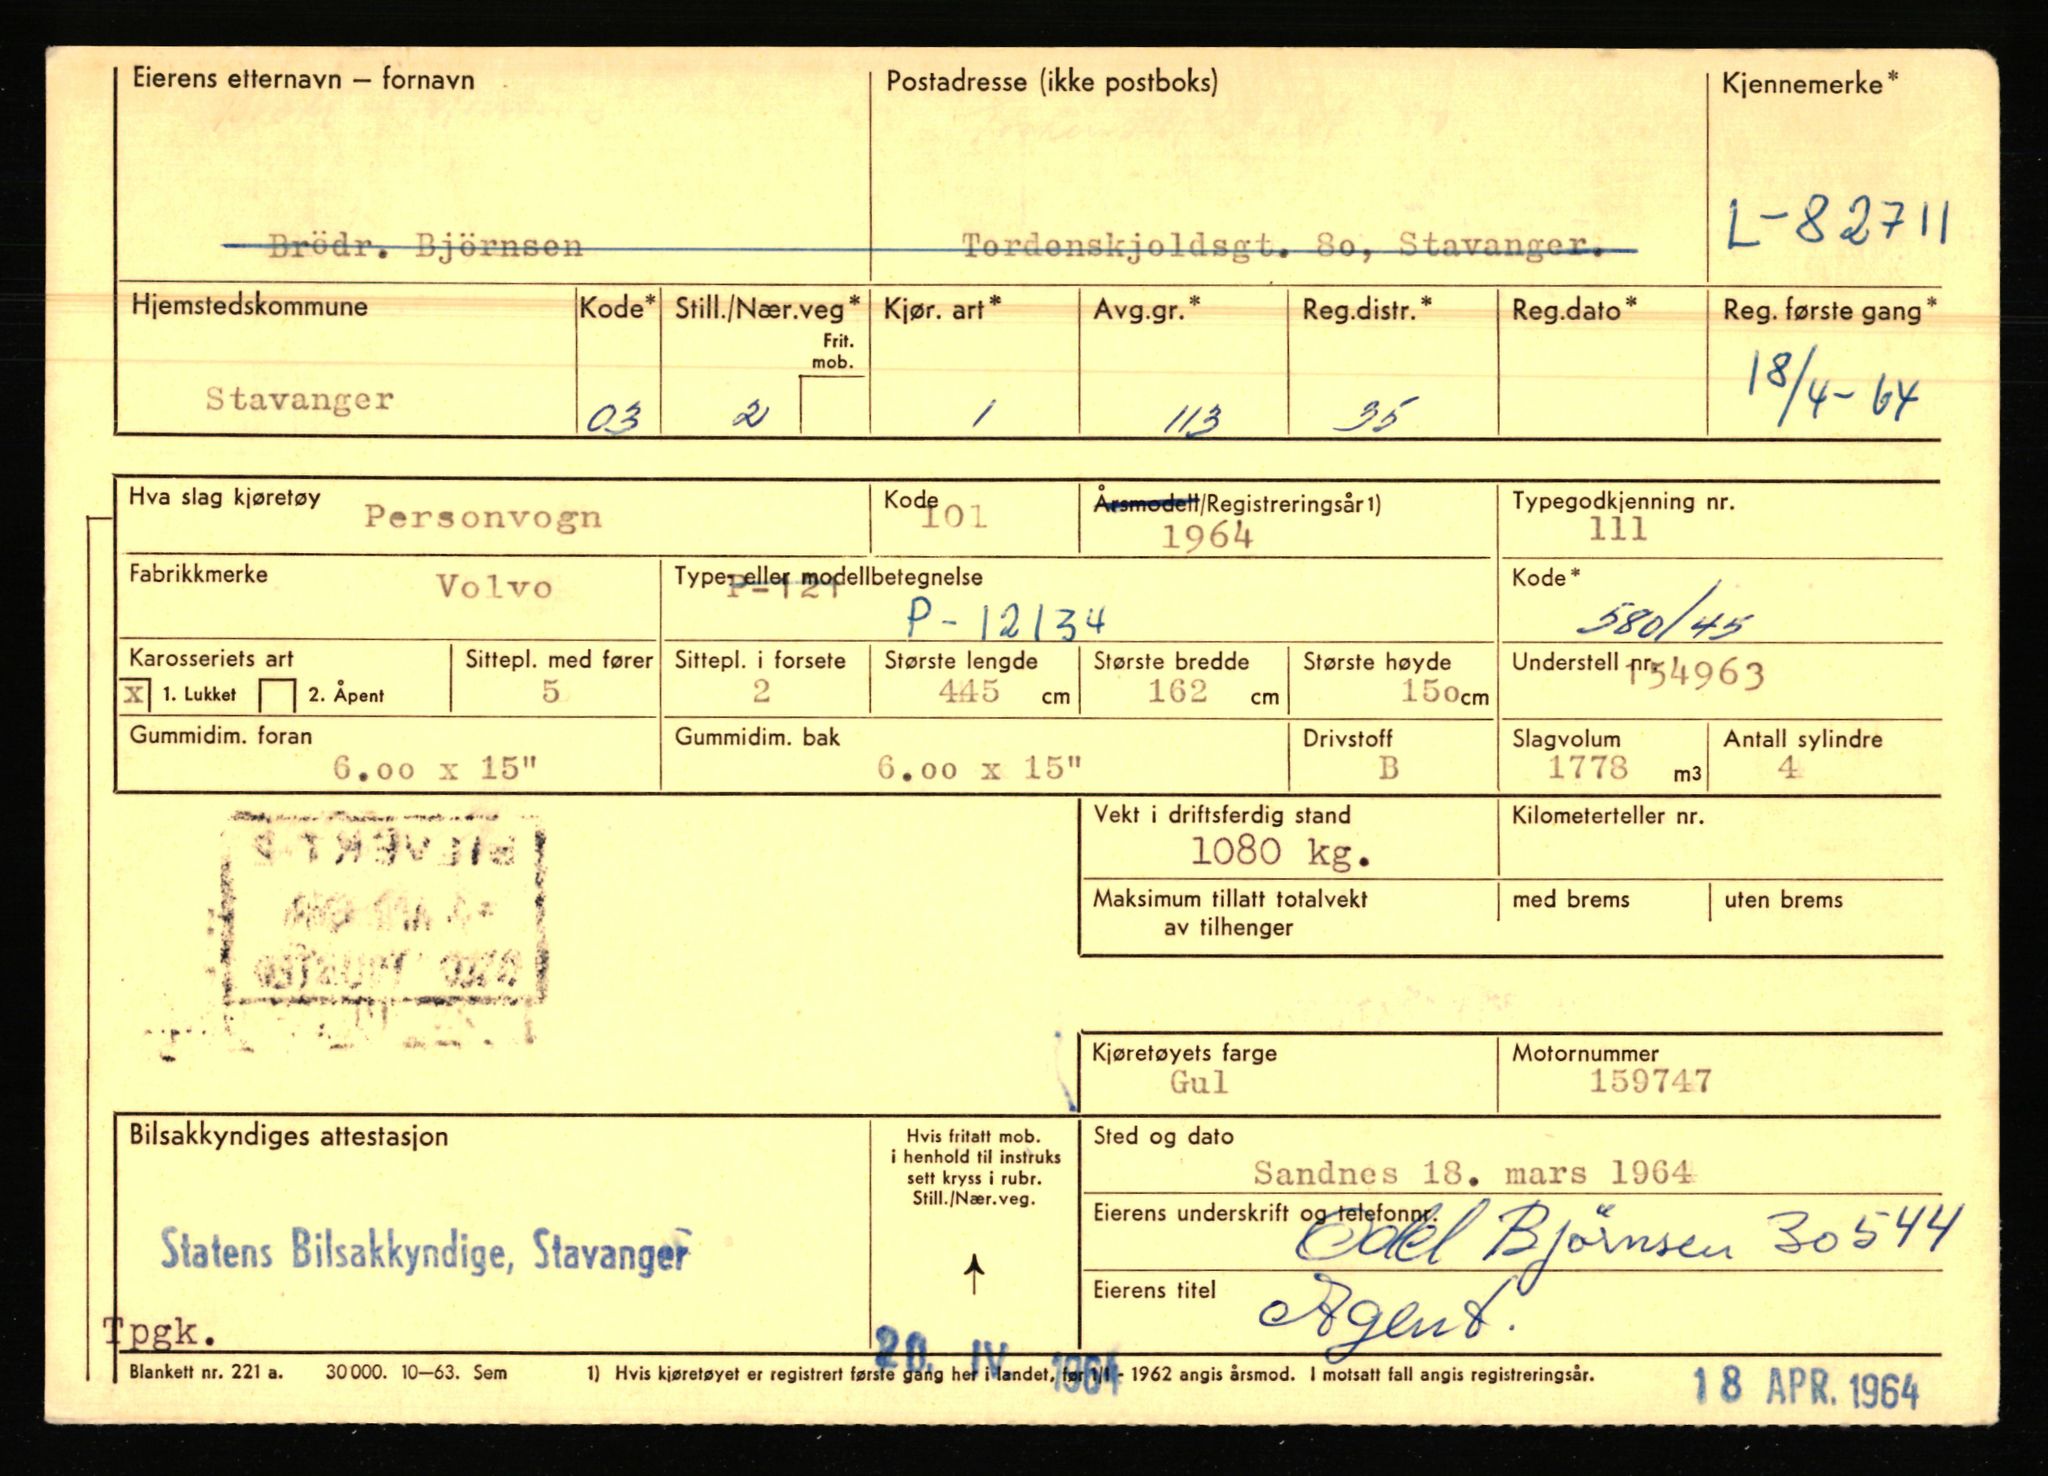 Eierens etternavn – fornavn
Postadresse (ikke postboks)
Kjennemerke*
Brödr. Björnsen
Tordenskjoldsgt. 80, Stavanger.
L-82711
Hjemstedskommune
Kode*
Still./Nær.veg*
Frit.
mob.
Kjør. art*
Avg.gr.*
Reg.distr.*
Reg.dato*
Reg. første gang*
Stavanger
03
2
1
113
35
18/4-64
Hva slag kjøretøy
Personvogn
Kode
101
Årsmodell/Registreringsår1)
1964
Typegodkjenning nr.
111
Fabrikkmerke
Volvo
Type- eller modellbetegnelse
P-121
P-12134
Kode*
580/45
Karosseriets art
X 1. Lukket 2. Åpent
Sittepl. med fører
5
Sittepl. i forsete
2
Største lengde
445 cm
Største bredde
162 cm
Største høyde
150 cm
Understell nr.
154963
Gummidim. foran
6.00 x 15"
Gummidim. bak
6.00 x 15"
Drivstoff
B
Slagvolum
1778 m3
Antall sylindre
4
Vekt i driftsferdig stand
1080 kg.
Kilometerteller nr.
Maksimum tillatt totalvekt
av tilhenger
med brems
uten brems
Kjøretøyets farge
Gul
Motornummer
159747
Bilsakkyndiges attestasjon
Statens Bilsakkyndige, Stavanger
Tpgk.
Hvis fritatt mob.
i henhold til instruks
sett kryss i rubr.
Still./Nær.veg.
Sted og dato
Sandnes 18. mars 1964
Eierens underskrift og telefonnr.
Odd Björnsen 30544
Eierens titel
Agent.
20. IV 1964
Blankett nr. 221 a. 30 000. 10–63. Sem
1) Hvis kjøretøyet er registrert første gang her i landet, før 1/1 - 1962 angis årsmod. I motsatt fall angis registreringsår.
18 APR. 1964